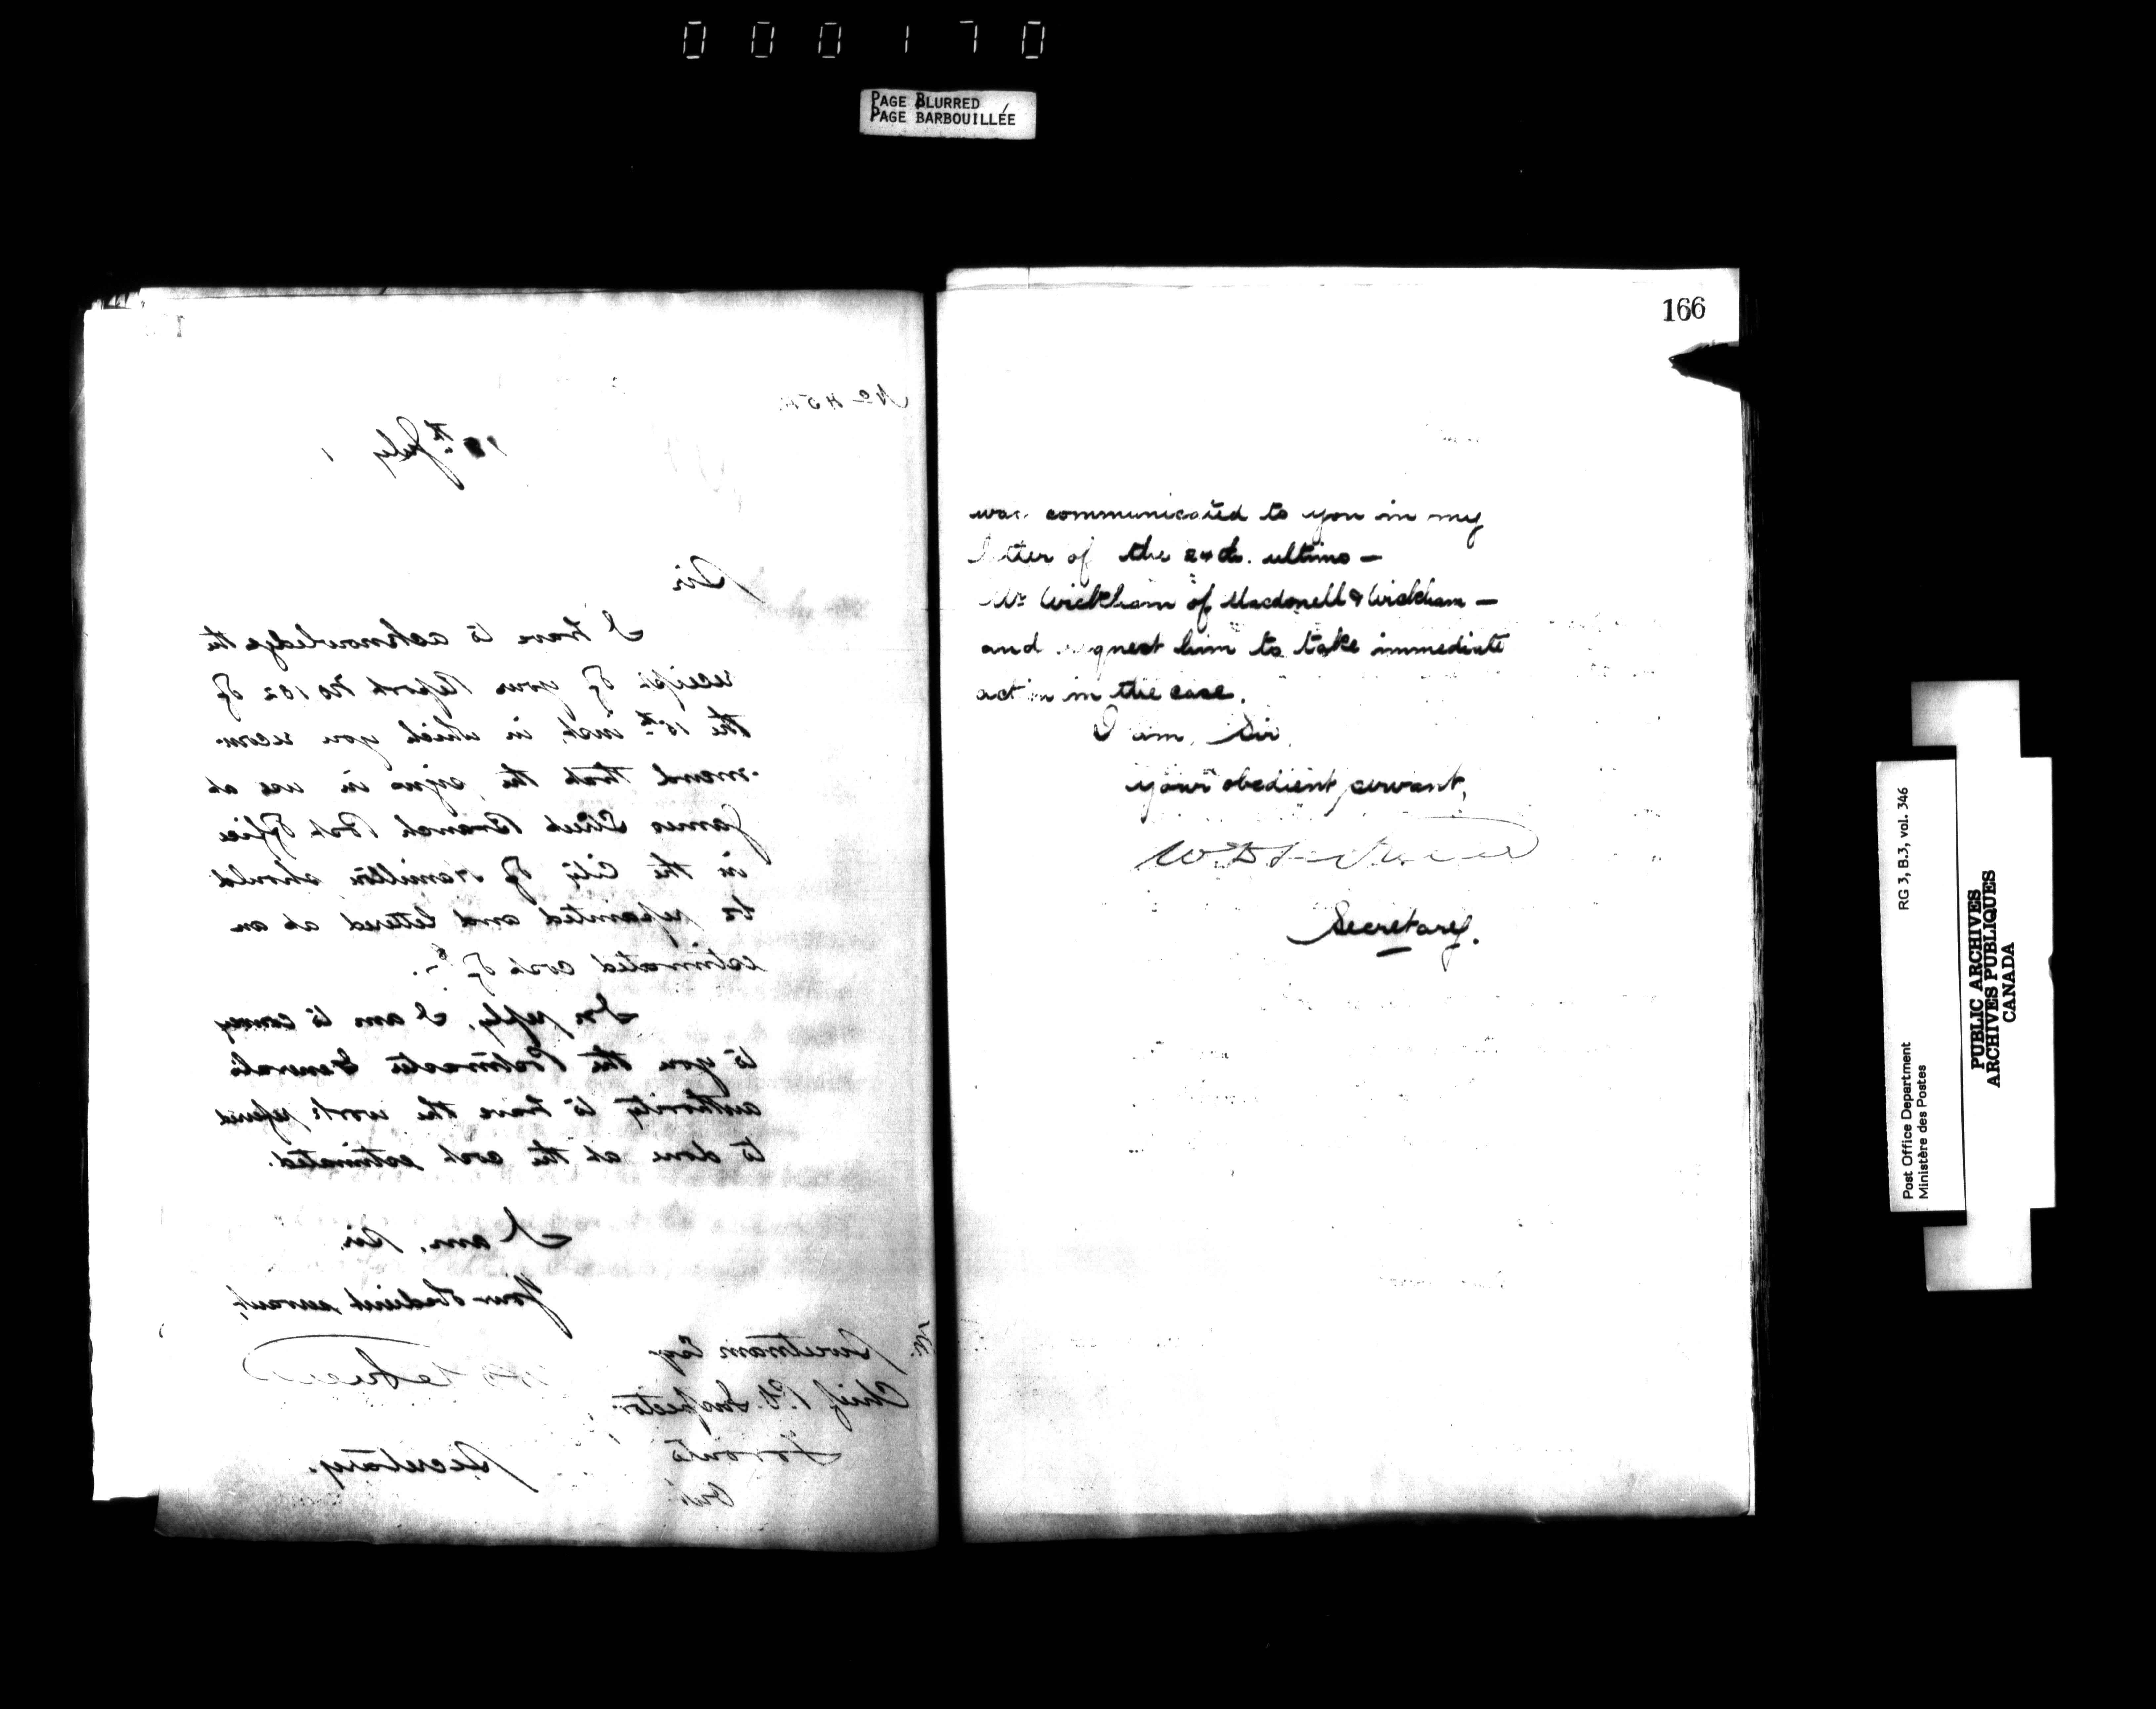 000170
PAGE BLURRED
PAGE BARBOUILLÉE
No 454
th July
Sir
I have to acknowledge the
receipt of your Report No 102 of
the 15th inst, in which you recom-
mend that the signs in use at
James Street Branch Post Office
in the City of Hamilton should
be repainted and lettered at an
estimated cost of
In reply, I am to convey
to you the Postmaster General's
authority to have the work referred
to done at the cost estimated.
I am, Sir
Your obedient servant,
Secretary.
Sweetnam Esq
Chief P.O. Inspector
Toronto
Ont
166
was communicated to you in my
letter of the 24th. ultimo —
Mr Wickham of Macdonell & Wickham —
and request him to take immediate
action in the case.
I am, Sir
your obedient servant,
Secretary.
RG 3, B.3, vol. 346
Post Office Department
Ministère des Postes
PUBLIC ARCHIVES
ARCHIVES PUBLIQUES
CANADA